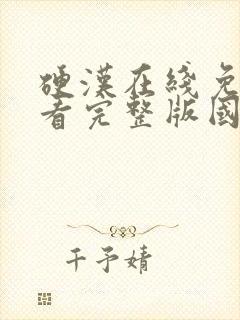 硬漢在綫免
看完整版國
千予婧